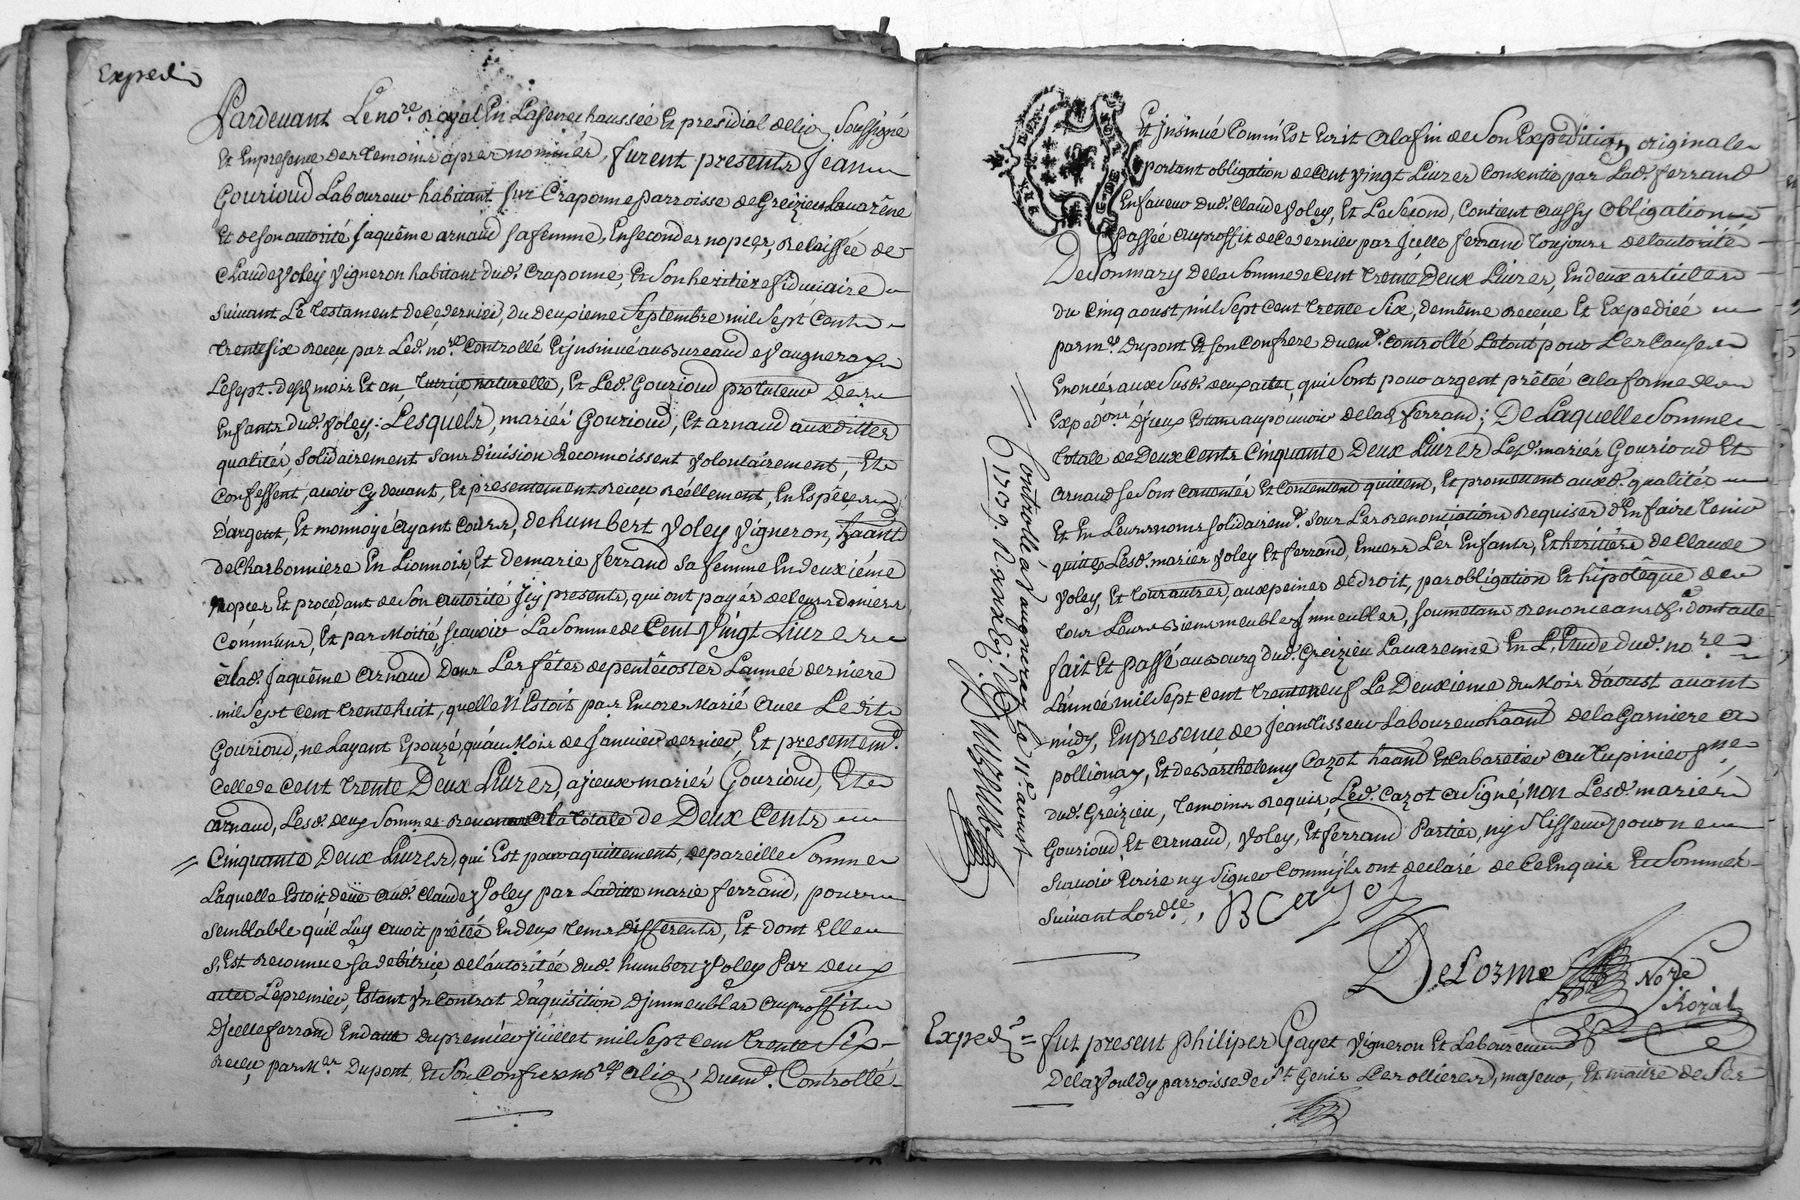 Expedié
Pardevant Le no.re Royal En La senechaussée Et presidial de lion soussigné
Et En presence des temoins apres nommés, furent presents Jean
Gourioud Laboureur habitant sur Craponne parroisse de Greizieu Lavarêne
Et de son autorité Jaquême arnaud sa femme, En secondes nopces, Relaissée de
Claude Voley Vigneron habitant dud. Craponne, Et son heritiere fiduciaire
suivant Le testament de ce dernier, du deuxieme septembre mil sept Cent
trente six Receu par Led. no.re Controllé Et jnsinué au Bureau de Vaugneray
Le sept desd. mois Et an, tutrice naturelle, Et Led. Gourioud protuteur des
Enfants dud. Voley; Lesquels, mariés Gourioud, Et arnaud auxdittes
qualités, solidairement sans division Reconnoissent Volontairement, Et
Confessent, avoir Cy devant, Et presentement Receu Réellement, En Espèces
d'argent, Et monnoyé ayant Cours, de humbert Voley Vigneron, haant
de Charbonniere En Lionnois, Et de marie ferrand sa femme En deuxiéme
nopces Et procedant de son autorité Jcy presents, qui ont payés de leurs deniers
Communs, Et par Moitié, scavoir La somme de Cent Vingt Livres
à lad. Jaquême arnaud Dans Les fêtes de pentêcostes L'année derniere
mil sept cent trente huit, quelle N'Estoit pas Encore Marié avec Ledit
Gourioud, ne Layant Epouzé, qu'au Mois de Janvier dernier, Et presentem.t
Celle de Cent trente Deux Livres, a jceux mariés Gourioud, Et
arnaud, Lesd. deux sommes Revenant a la totale de Deux Cents
Cinquante Deux Livres, qui Est par aquittement, de pareille somme
Laquelle Estoit deüe aud. Claude Voley par Laditte marie ferrand, pour
semblable qu'il Luy avoit prêtée En deux tems differents, Et dont Elle
s'Est Reconnue sa debitrice de l'autoritée dud. humbert Voley Par deux
actes Le premier, Estant Vn Contrat d'aquisition d'jmmeubles au proffit
d'jcelle ferrand En datte du premier Juillet mil sept cent trente six
Receu par M.e Dupont, Et son Confrere no.res a lion, Dument. Controllé
Et jnsinué Comm'Est Ecrit a la fin de son Expedition originale
portant obligation de Cent Vingt Livres Consentie par Lad. ferrand
En faveur dud. Claude Voley, Et Le second, Contient aussy obligation
passée au proffit de Ce dernier par Jcelle ferrand toujours de l'autorité
De son mary de la somme de Cent trente Deux Livres, En deux articles
du Cinq aoust, mil sept Cent trente six, de même Receue Et Expediée
par m.e Dupont Et son Confrere duem.t Controllé Le tout pour Les Causes
Enoncés aux susd. deux actes, qui sont pour argent prêtée a la forme des
Exped.ons d'jceux Estans au pouvoir de lad. ferrand; De Laquelle somme
totale de Deux Cents Cinquante Deux Livres Lesd. mariés Gourioud Et
arnaud se sont Contentés Et Contentent quittent, Et promettent auxd. qualités
Et En Leurs noms solidairem.t sous Les Renonciations Requises d'En faire tenir
quittes Lesd. mariés Voley Et ferrand, Envers Les Enfants, Et heritiers de Claude
Voley, Et tous autres, aux peines de droit, par obligation Et hipotêque de
tous Leurs Biens meubles Jmmeubles, soumettans Renonceans &.a dont acte
fait Et passé au Bourg dud. Greizieu Lavarenne En L'Etude dud. no.re
L'année mil sept cent trente neuf Le Deuxieme du Mois d'aoust avant
midy, En presence de Jean tisseur Laboureur haant de la Garniere a
pollionay, Et de Barthelemy Cazot haant Et Cabaretier au tupinier p.sse
dud. Greizieu, temoins Requis, Led. Cazot a signé, non Lesd. mariés
Gourioud Et arnaud, Voley, Et ferrand Parties, ny tisseur pour ne
scavoir Ecrire ny signer Comm'jls ont declaré de Ce Enquis Et sommés
suivant Lord.ce,
B Cazot
DeLorme No.re Royal
Controllé à Vaugneray Le 11.e aoust
1739. R
Exped.é = fut present Philipes Gayet Vigneron Et Laboureur
De la Vouldy parroisse de S.t Genis Les ollieres, majeur, Et maître de ses